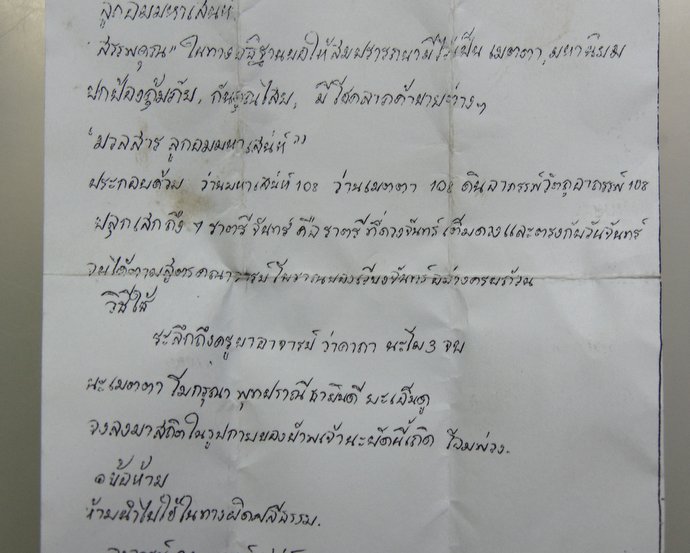 ลูกอมมหาเสน่ห์
"สรรพคุณ" ในทางอธิฐานขอให้สมปรารถนามีไว้เป็น เมตตา, มหานิยม
ปกป้องคุ้มภัย, กันคุณไสย, มีโชคลาภค้าขายต่างๆ
"มวลสาร ลูกอมมหาเสน่ห์"
ประกอบด้วย ว่านมหาเสน่ห์ 108 ว่านเมตตา 108 ดินอาถรรพ์วัตถุอาถรรพ์ 108
ปลุกเสกถึง ๆ ราตรี จันทร์ คือราตรี ที่ดวงจันทร์ เต็มดวงและตรงกับวันจันทร์
จนได้ตามสูตรคณาจารย์ โบราณของเวียงจันทร์อย่างครบถ้วน
วิธีใช้
ระลึกถึงครูบาอาจารย์ ว่าคาถา นะโม 3 จบ
นะเมตตา โมกรุณา พุทปราณี ธายินดี ยะเอ็นดู
จงลงมาสถิตในรูปกายของข้าพเจ้านะบัดนี้เถิด
ข้อห้าม
ห้ามนำไปใช้ในทางผิดศีลธรรม.